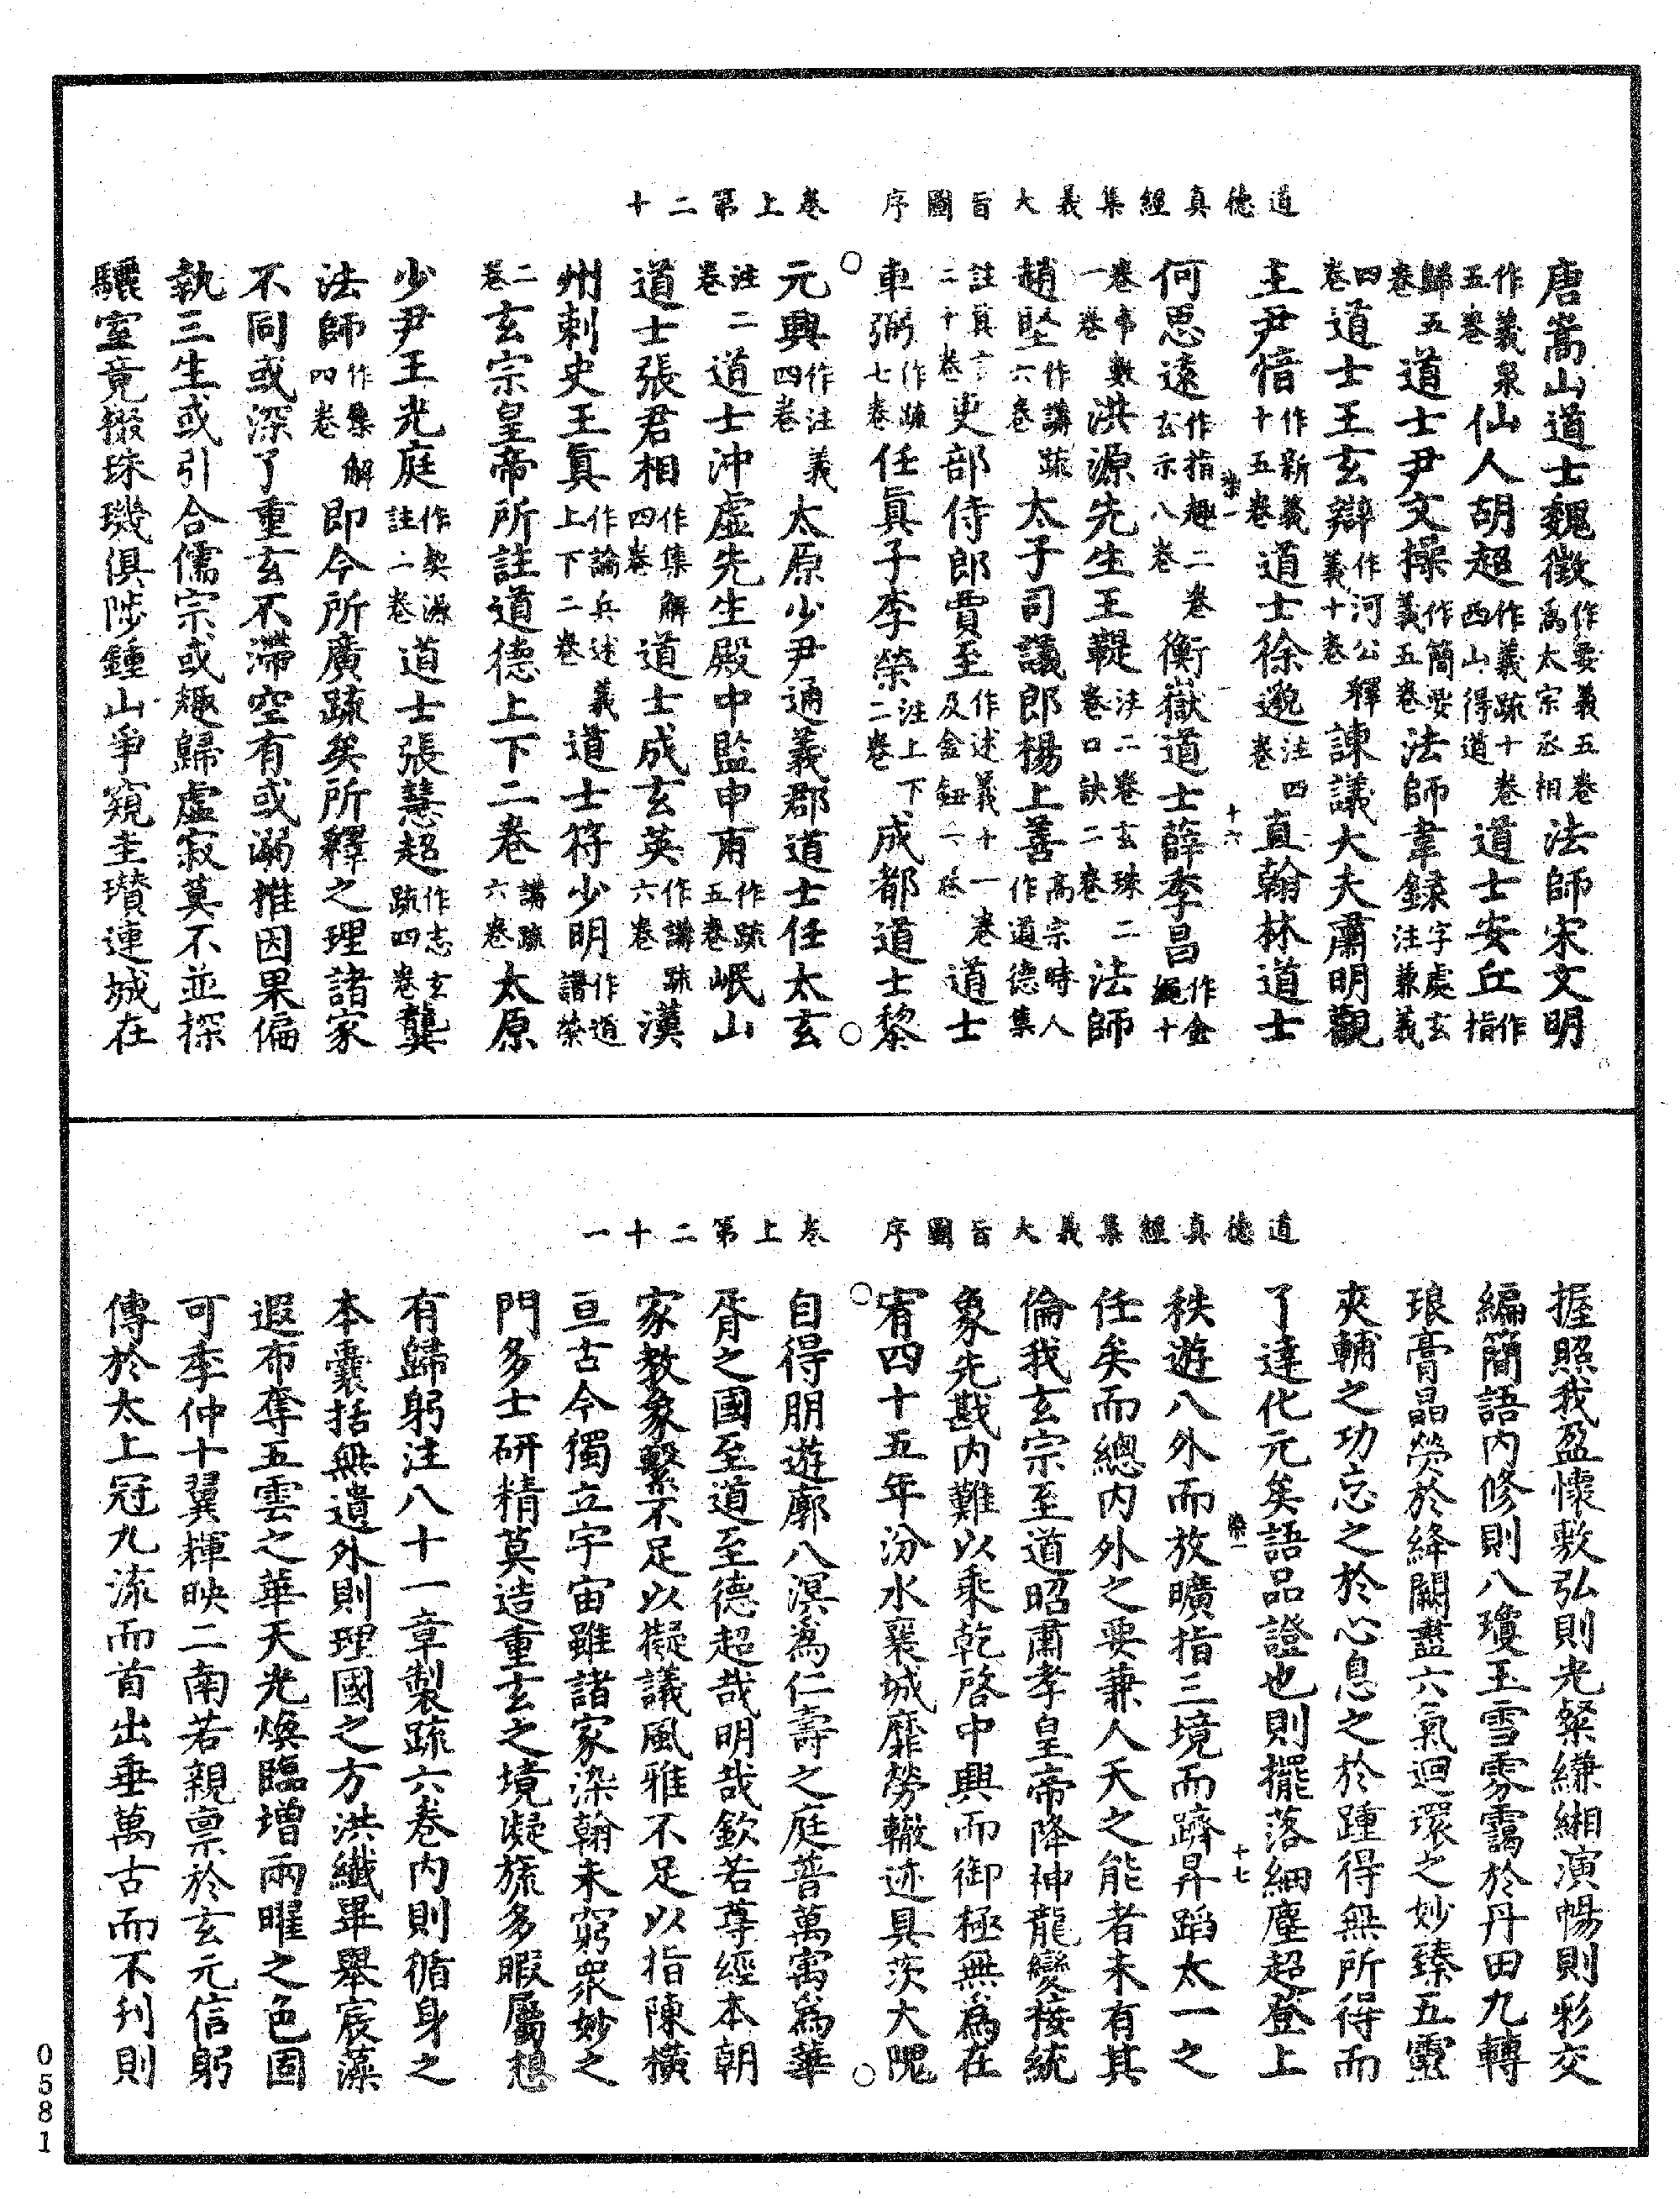 道德真經集義大旨圖序　卷上第二十
唐嵩山道士魏徵作要義五卷為太宗丞相法師宋文明
作義泉五卷仙人胡超作義疏十卷西山得道道士安丘作指
歸五卷道士尹文操作簡要義五卷法師韋録字處玄注兼義
四卷道士王玄辯作河公釋義十卷諫議大夫肅明觀
主尹愔作新義十五卷道士徐邈注四卷直翰林道士
何思遠作指趣二卷玄示八卷衡嶽道士薛季昌作金繩十
卷事數一卷洪源先生王鞮注二卷玄珠二卷口訣二卷法師
趙堅作講疏六卷太子司議郎楊上善高宗時人作道德集
註真言二十卷吏部侍郎賈至作述義十一卷及金鈕一卷道士
車弼作疏七卷任真子李榮注上下二卷成都道士黎
元興作注義四卷太原少尹通義郡道士任太玄
注二卷道士沖虛先生殿中監申甫作疏五卷岷山
道士張君相作集解四卷道士成玄英作講疏六卷漢
州刺史王真作論兵述義上下二卷道士符少明作道譜䇿
二卷玄宗皇帝所註道德上下二卷講疏六卷太原
少尹王光庭作契源註二卷道士張慧超作志玄疏四卷龔
法師作集解四卷即今所廣疏矣所釋之理諸家
不同或深了重玄不滯空有或溺推因果偏
執三生或引合儒宗或趣歸虛寂莫不並探
驪室競掇珠璣俱陟鍾山爭窺圭瓚連城在
道德真經集義大旨圖序　卷上第二十一
握照我盈懷敷弘則光粲縑緗演暢則彩交
編簡語內修則八瓊玉雪雰靄於丹田九轉
琅膏晶熒於絳闕盡六氣迴環之妙臻五靈
夾輔之功忘之於心息之於踵得無所得而
了達化元矣語品證也則擺落細塵超登上
秩遊八外而放曠指三境而躋昇蹈太一之
任矣而總內外之要兼人天之能者未有其
倫我玄宗至道昭肅孝皇帝降神龍變接統
象先戡內難以乘乾啓中興而御極無為在
宥四十五年汾水襄城靡勞轍迹具茨大隗
自得朋遊廓八溟為仁壽之庭普萬寓為華
胥之國至道至德超哉明哉欽若尊經本朝
家教象繫不足以擬議風雅不足以指陳橫
亘古今獨立宇宙雖諸家染翰未窮衆妙之
門多士研精莫造重玄之境凝旒多暇屬想
有歸躬注八十一章製疏六卷內則循身之
本囊括無遺外則理國之方洪纖畢舉宸藻
遐布奪五雲之華天光煥臨增兩曜之色固
可季仲十翼輝映二南若親稟於玄元信躬
傳於太上冠九流而首出垂萬古而不刊則
染一
十六
染一
十七
0581